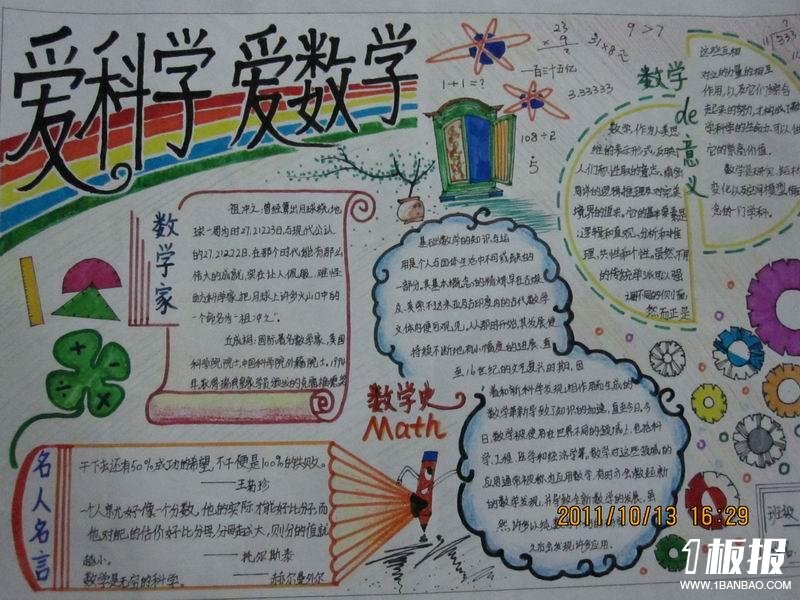 爱科学 爱数学
1+1=?
23
×9
?
一百三十五亿
3.33333
108÷2
5
9>7
数学de意义
这些互相
对立的力量的相互
作用,以及它们综合
起来的努力,才构成了数
学科学的生命力,可以住
它的崇高价值.
数学是研究
变化以及空间模型
念的一门学科。
数学,作为人类思
维的表示形式,反映
人们积进取的意志、缜密
周详的逻辑推理及对完美
境界的追求。它的基本要素是
:逻辑和直观、分析和推
理、共性和个性。虽然不同
的传统学派可以强
调不同的侧面,
然而正是
数学家
祖冲之:曾经算出月球绕地
球一周为时27.21223日,与现代公认
的27.21222日,在那个时代能有那么
伟大的成就,实在让人佩服,难怪
西方科学家把月球上许多火山口中的
一个命名为“祖冲之”。
丘成桐:国际著名数学家,美国
科学院院士,中国科学院外籍院士。
基础数学的知识与运
用是个人与团体生活中不可或缺的
一部分,其基本概念的精炼早在古埃
及、美索不达米亚及古印度内的古代数学
文本内便可观见。从那时开始,其发展便
持续不断地有小幅度的进展,直
至16世纪的文艺复兴时期,因
着和新科学发现相作用而生成的
数学革新导致了知识的加速,直至今日。今
日,数学被使用在世界不同的领域上,包括科
学、工程、医学和经济学等。数学对这些领域的
应用通常被称为应用数学,有时亦会激起新
的数学发现,并导致全新学科的发展。虽
然,许多以纯
之后会发现许多应用。
数学史
Math
名人名言
干下去还有50%成功的希望,不干便是100%的失败。
——王菊珍
一个人就好像一个分数,他的实际才能好比分子,而
他对自己的估价好比分母,分母越大,则分的值就
越小。 ——托尔斯泰
数学是无穷的科学。 ——赫尔曼外尔
班级
2011/10/13 16:29
1板报
WWW.1BANBAO.COM